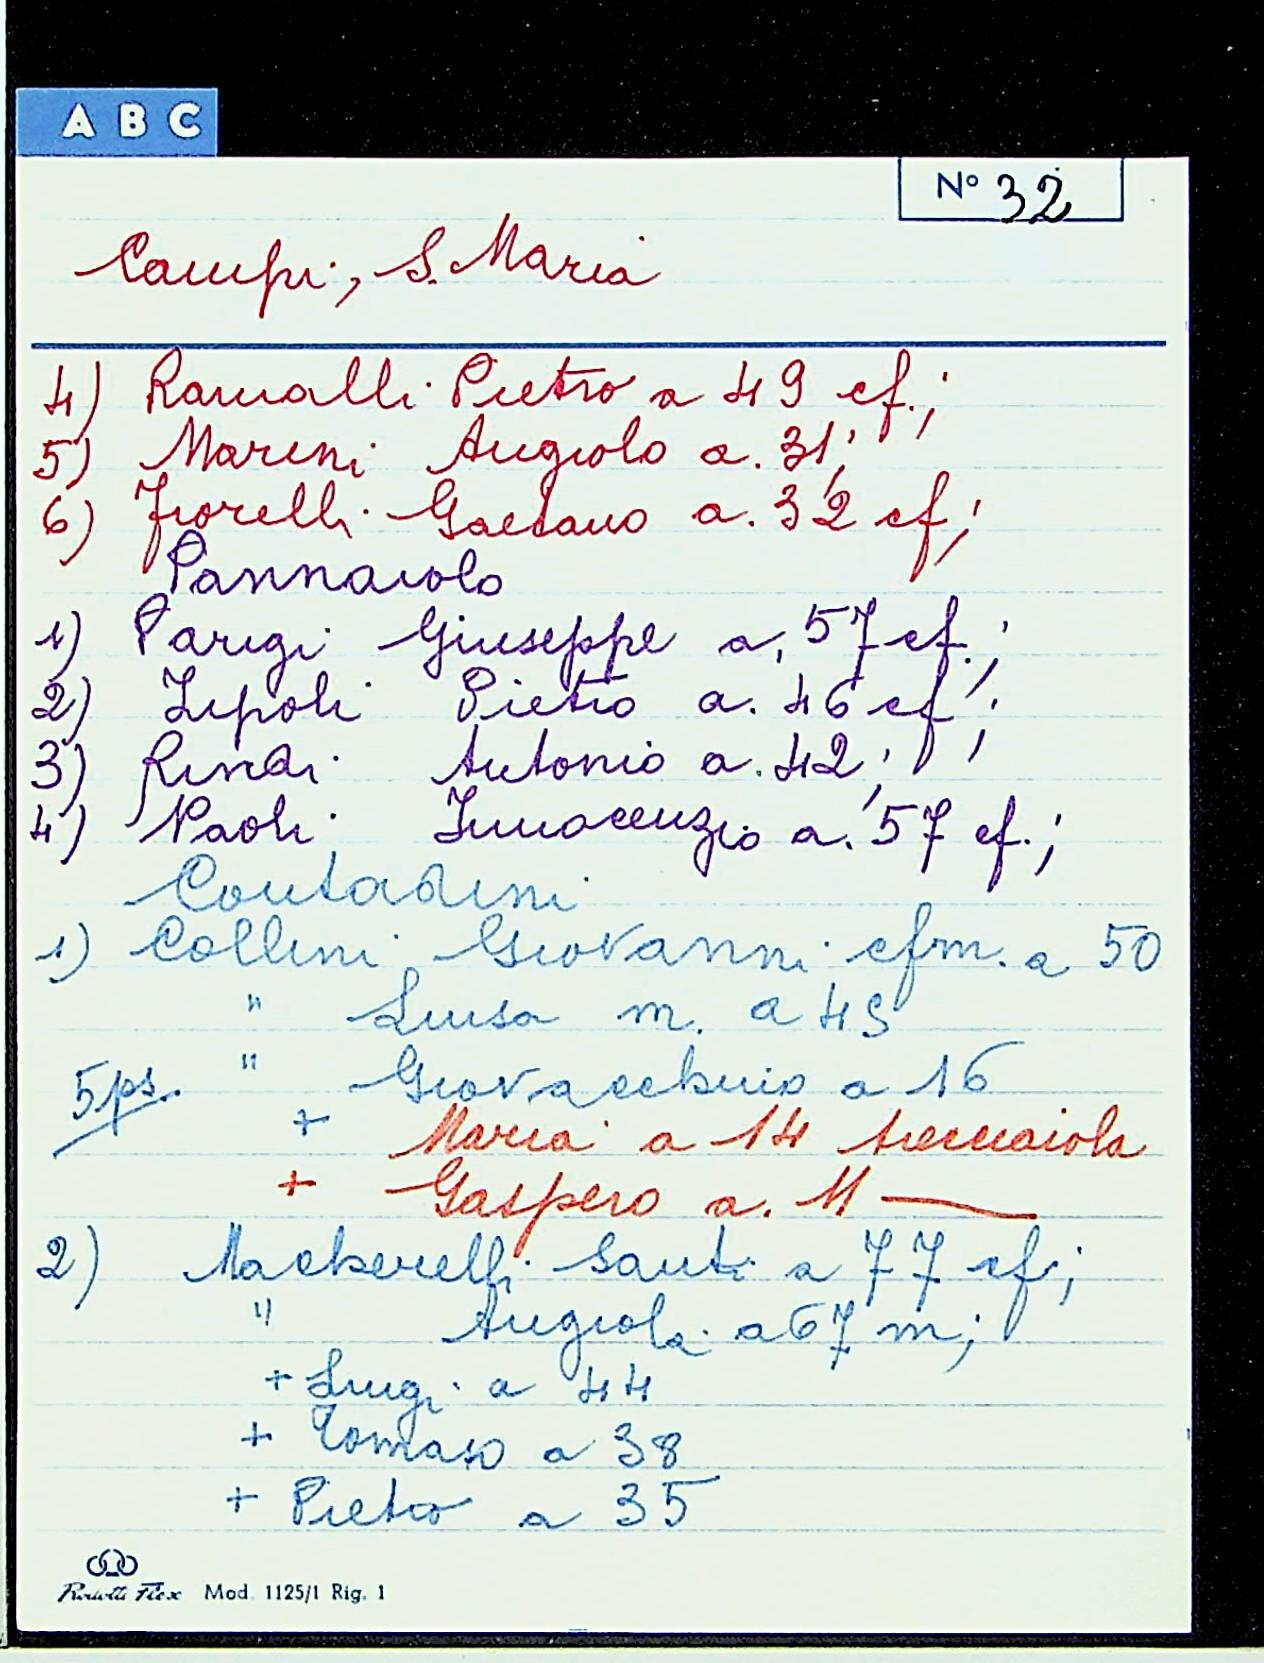 A B C
N° 32
Campi, S. Maria
4) Ramalli Pietro a 49 cf.;
5) Marini Angiolo a. 31;
6) Fiorelli Gaetano a. 32 cf;
Pannaiolo
1) Parigi Giuseppe a. 57 cf.;
2) Lipoli Pietro a. 46 cf;
3) Rindi Antonio a. 42;
4) Paoli Innocenzio a. 57 cf.;
Contadini
1) Collini Giovanni cfm. a 50
" Luisa m. a 49
5 ps. " Giovacchino a 16
+ Maria a 14 trecciaiola
+ Gaspero a. 11 —
2) Mackerelli Santi a 77 cf.;
" Angiola a 67 m;
+ Luigi a 44
+ Tomaso a 38
+ Pietro a 35
Flex Mod. 1125/1 Rig. 1